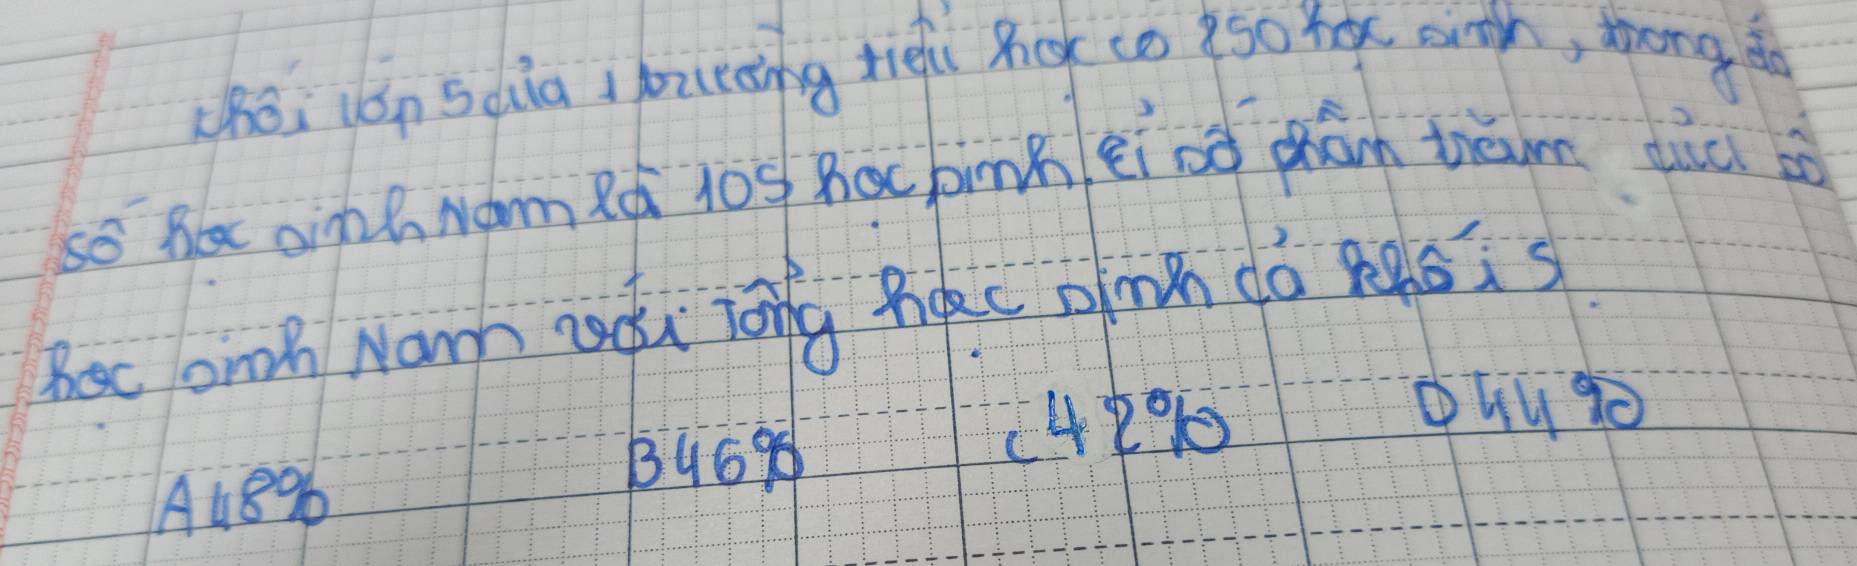 khối lớp 5 của 1 trường tiểu học có 250 học sinh, trong đó
số học sinh Nam là 105 học sinh. tỉ số phần trăm của số
học sinh Nam với Tổng học sinh cả khối 5.
A 48% B 46% C 42% D 44%